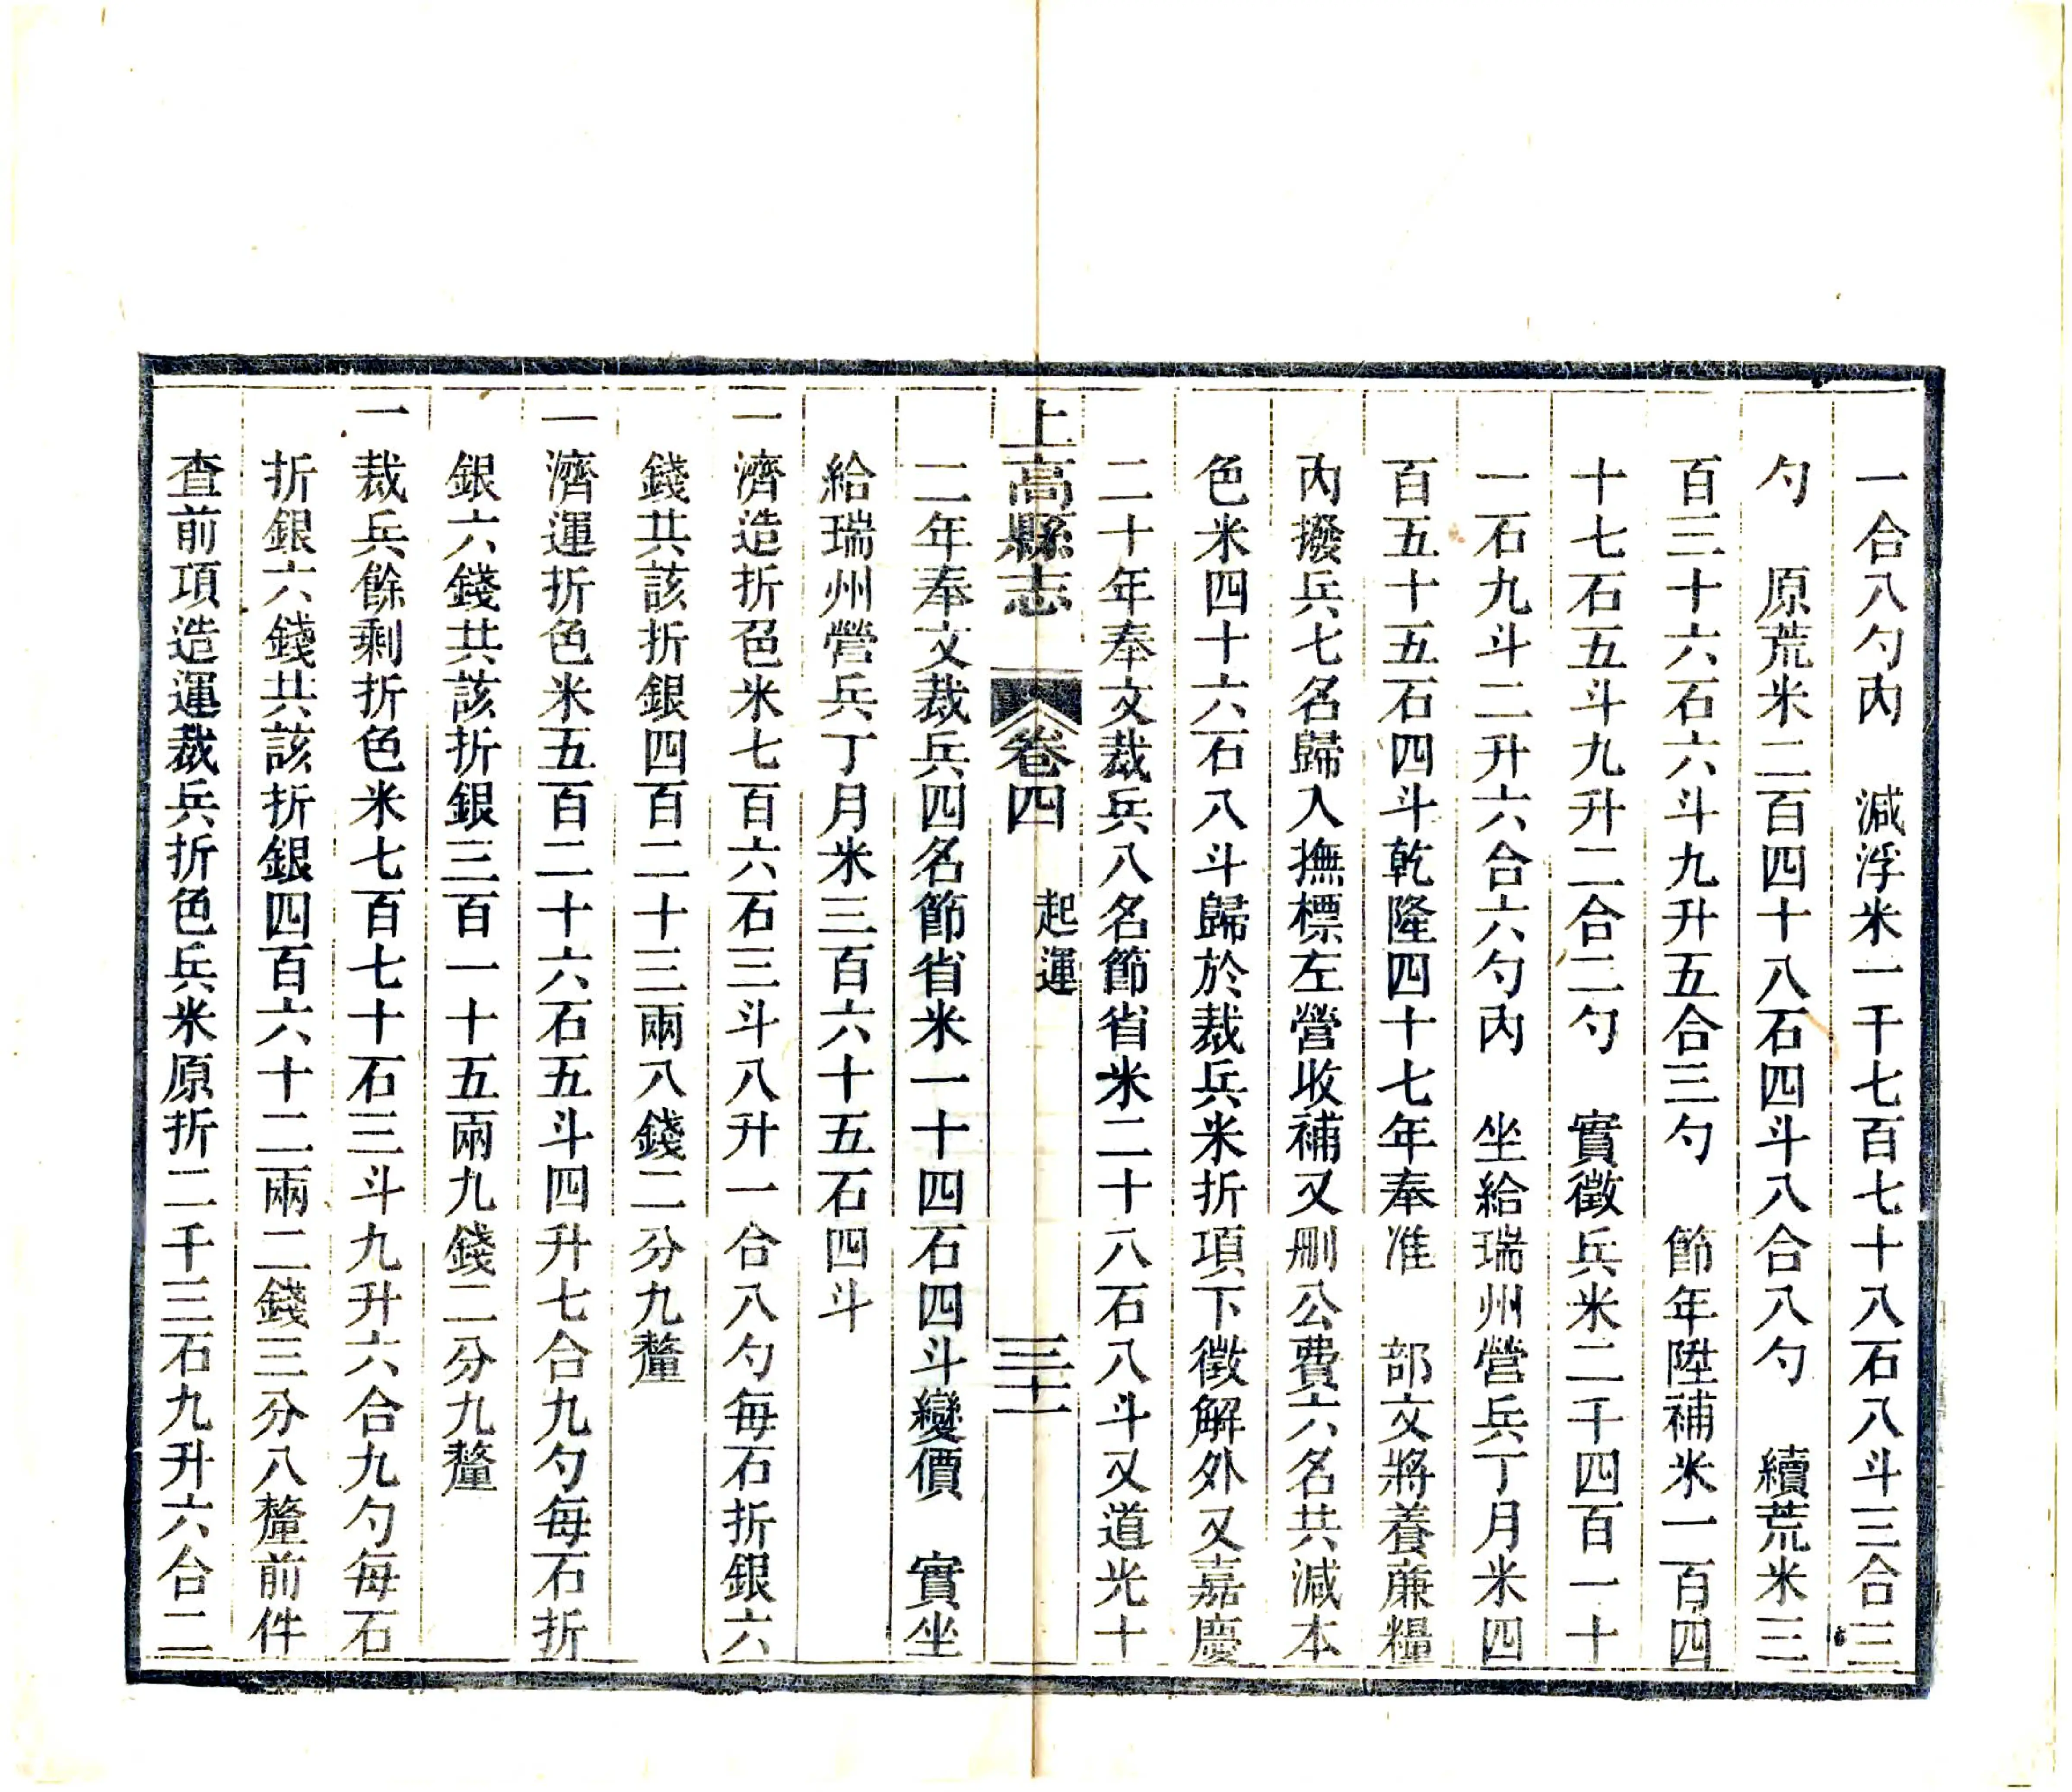 一合八勺內　減浮米一千七百七十八石八斗三合三
勺　原荒米二百四十八石四斗八合八勺　續荒米三
百三十六石六斗九升五合三勺　節年陞補米一百四
十七石五斗九升二合二勺　實徵兵米二千四百一十
一石九斗二升六合六勺內　坐給瑞州營兵丁月米四
百五十五石四斗乾隆四十七年奉准　部文將養亷糧
內撥兵七名歸入撫標左營收補又刪公費六名共減本
色米四十六石八斗歸於裁兵米折項下徵解外又嘉慶
二十年奉文裁兵八名節省米二十八石八斗又道光十
上高縣志　卷四　起運　三十一
二年奉文裁兵四名節省米一十四石四斗變價　實坐
給瑞州營兵丁月米三百六十五石四斗
一濟造折色米七百六石三斗八升一合八勺每石折銀六
錢共該折銀四百二十三兩八錢二分九釐
一濟運折色米五百二十六石五斗四升七合九勺每石折
銀六錢共該折銀三百一十五兩九錢二分九釐
一裁兵餘剩折色米七百七十石三斗九升六合九勺每石
折銀六錢共該折銀四百六十二兩二錢三分八釐前件
查前項造運裁兵折色兵米原折二千三石九升六合二